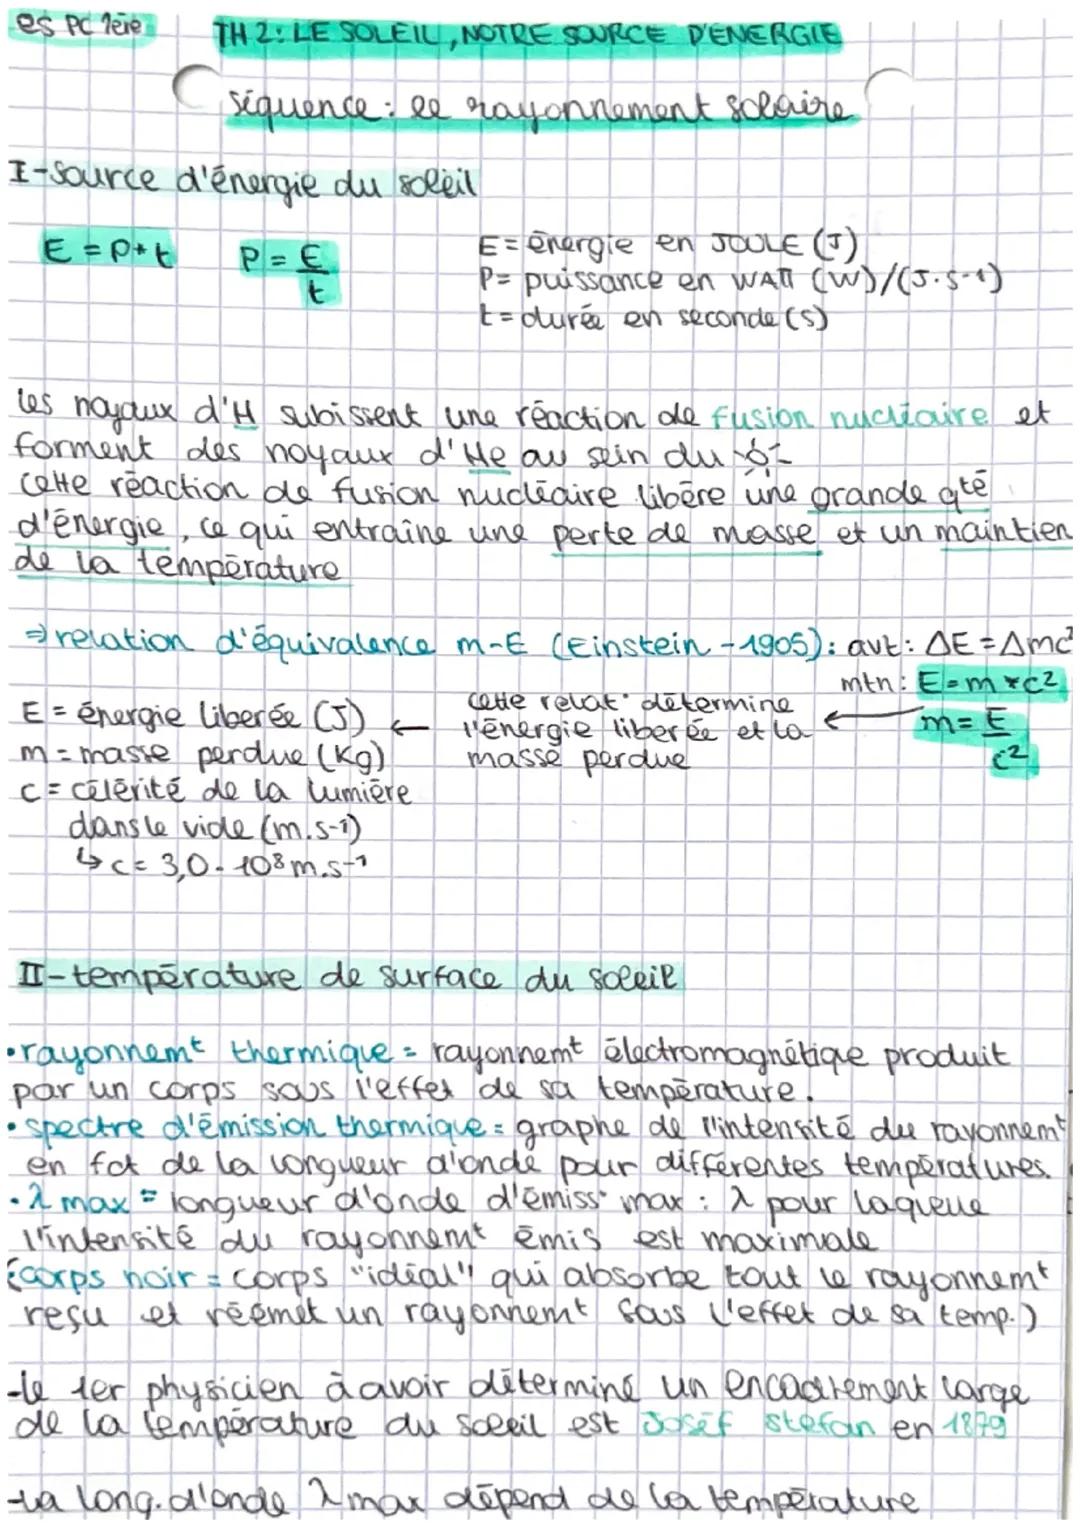 es PC 1ère
TH 2: LE SOLEIL, NOTRE SOURCE D'ENERGIE
séquence : le rayonnement solaire
I-source d'énergie du soleil
E = P*t
P = E/t
E = énergie en JOULE (J)
P = puissance en WATT (W)/(J.s-1)
t = durée en seconde (s)
les noyaux d'H subissent une réaction de fusion nucléaire et
forment des noyaux d'He au sein du
cette réaction de fusion nucléaire libère une grande qté
d'énergie, ce qui entraîne une perte de masse et un maintien
de la température
⇒ relation d'équivalence m-E (Einstein - 1905): avt: ΔE = Δmc²
mtn: E = m*c²
m = E/c²
cette relat° détermine
l'énergie liberée et la
masse perdue
E = énergie liberée (J) ←
m = masse perdue (Kg)
c = célérité de la lumière
dans le vide (m.s-1)
↳ c = 3,0.10⁸ m.s⁻¹
II-température de surface du soleil
•rayonnemt thermique = rayonnemt électromagnétique produit
par un corps sous l'effet de sa température.
•spectre d'émission thermique = graphe de l'intensité du rayonnemt
en fct de la longueur d'onde pour différentes températures.
•λ max = longueur d'onde d'émiss° max : λ pour laquelle
l'intensité du rayonnemt émis est maximale
(corps noir = corps "idéal" qui absorbe tout le rayonnemt
reçu et réémet un rayonnemt sous l'effet de sa temp.)
-le 1er physicien à avoir déterminé un encadrement large
de la température du soleil est Josef Stefan en 1879
-La long. d'onde λ max dépend de la température